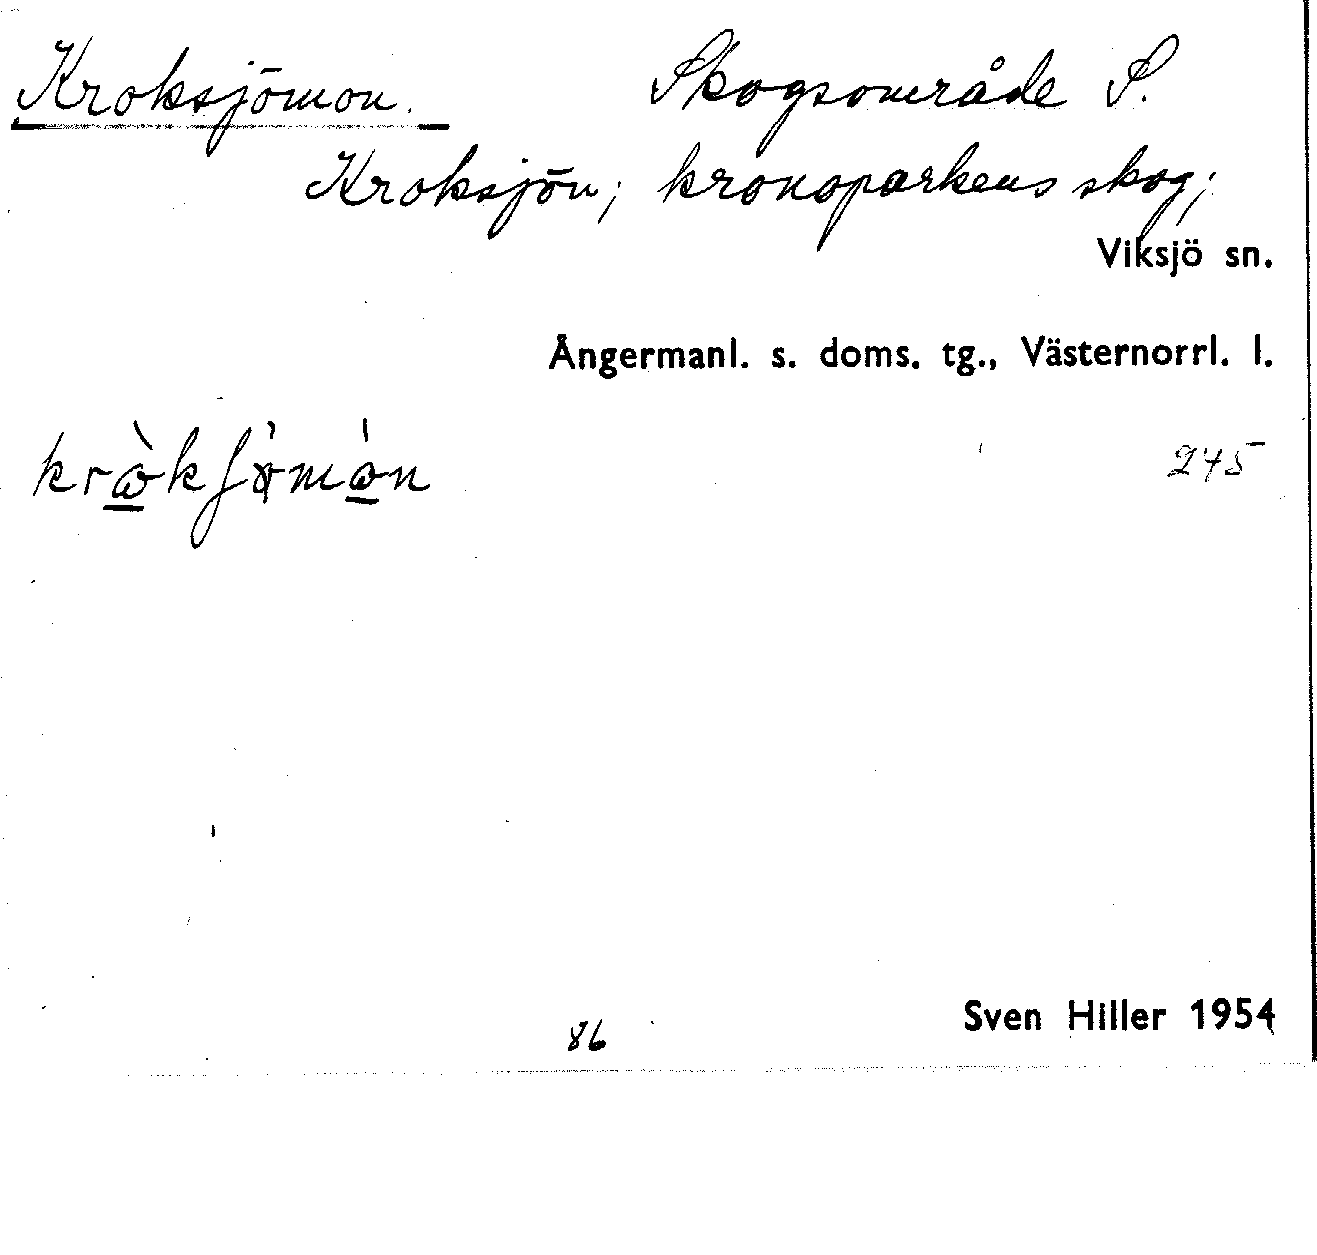 Kroksjömon. Skogsområde S.
Kroksjön; kronoparkens skog;
Viksjö sn.
Ångermanl. s. doms. tg., Västernorrl. l.
245
Sven Hiller 1954
86